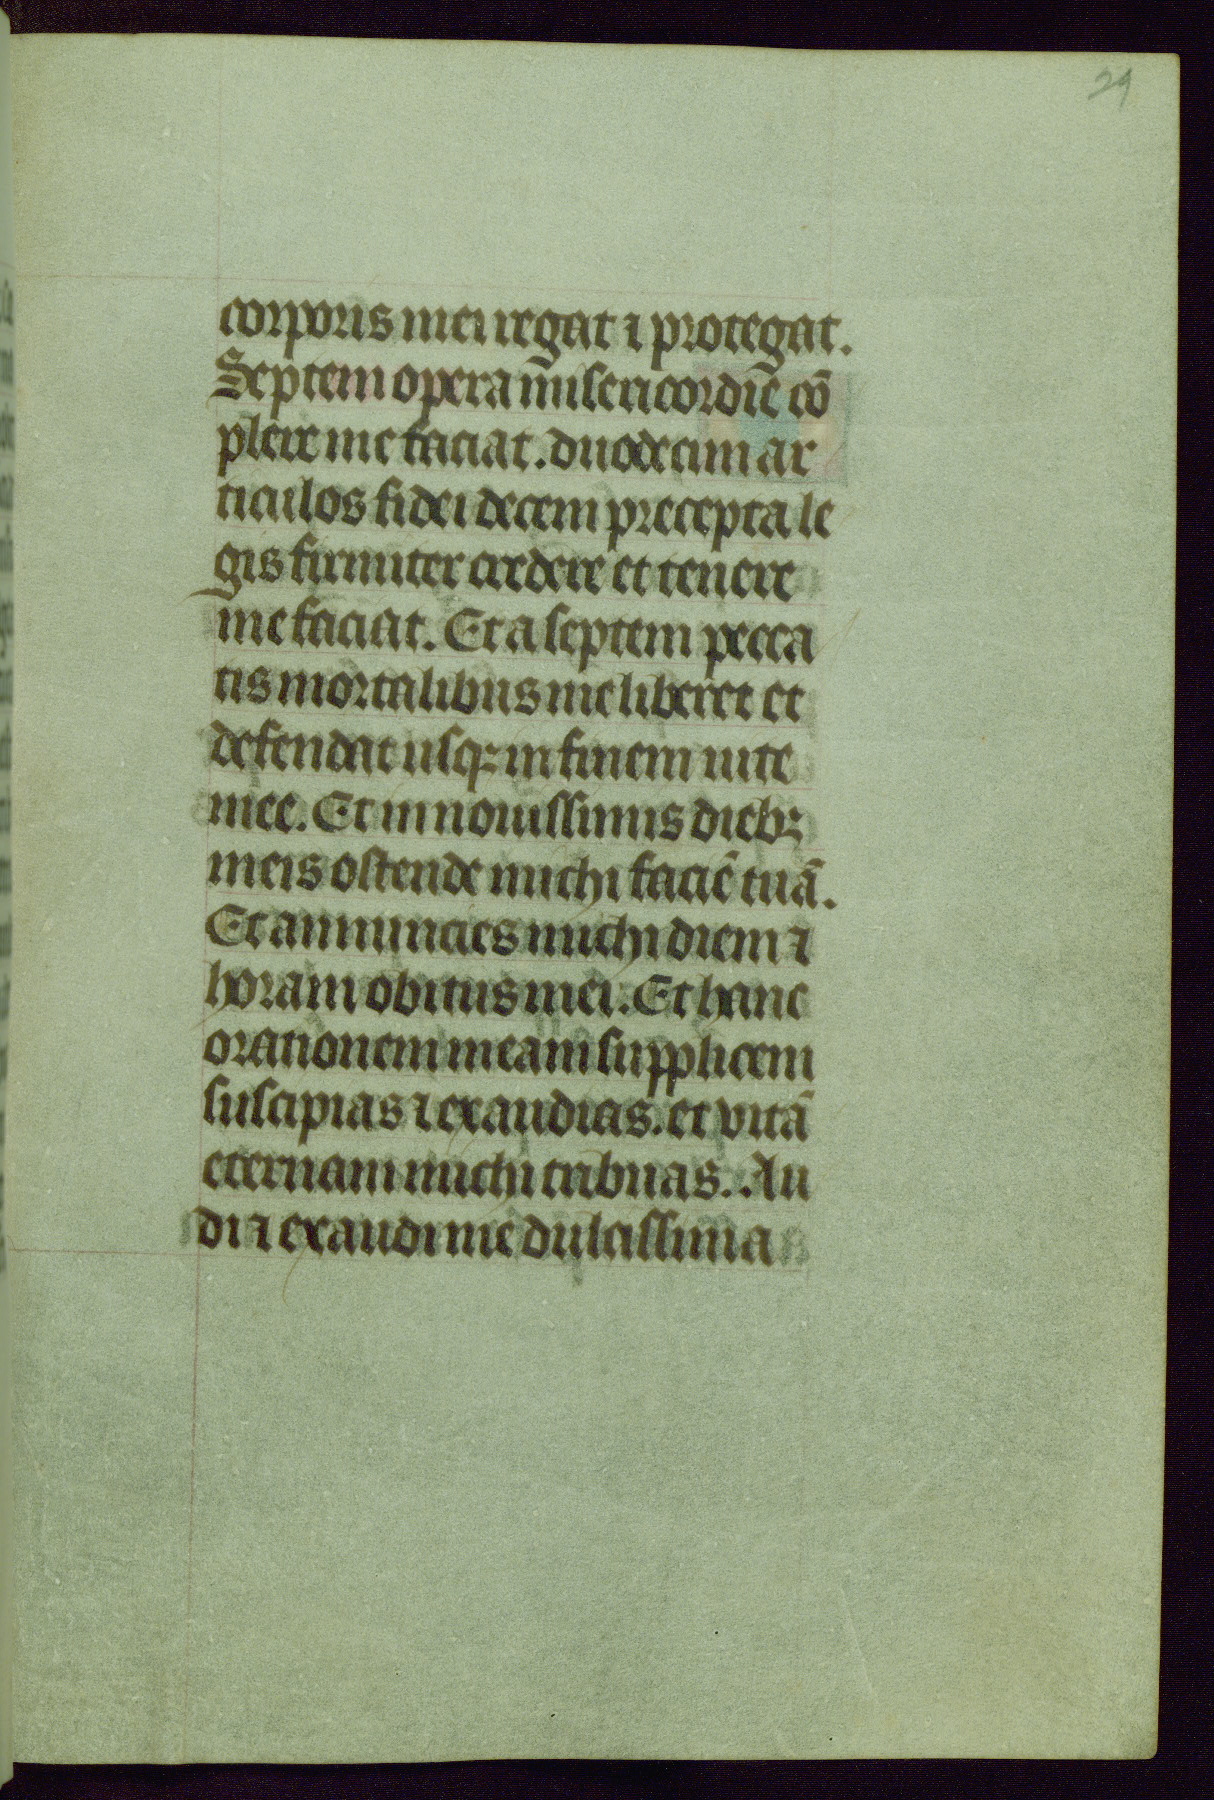 29
corporis mei regat ⁊ protegat.
Septem opera misericordie cō
plere me faciat. duodecim ar
ticulos fidei decem precepta le
gis firmiter credere et tenere
me faciat. Et a septem pecca
tis mortalibus me liberet et
defendat usqꝫ in finem uite
mee. Et in nouissimis diebꝫ
meis ostende michi faciē tuā.
Et annuncies michi diem ⁊
horam obitus mei. Et hanc
orationem meam supplicem
suscipias ⁊ exaudias. et vitā
eternam michi tribuas. Au
di ⁊ exaudi me dulcissima